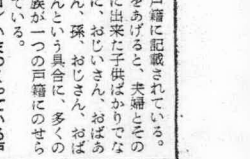 戸籍に記載されている。
をあげると、夫婦とその
に出来た子供ばかりでな
に、おじいさん、おばあ
ん、孫、おじさん、おば
んという具合に、多くの
族が一つの戸籍にのせら
ている。